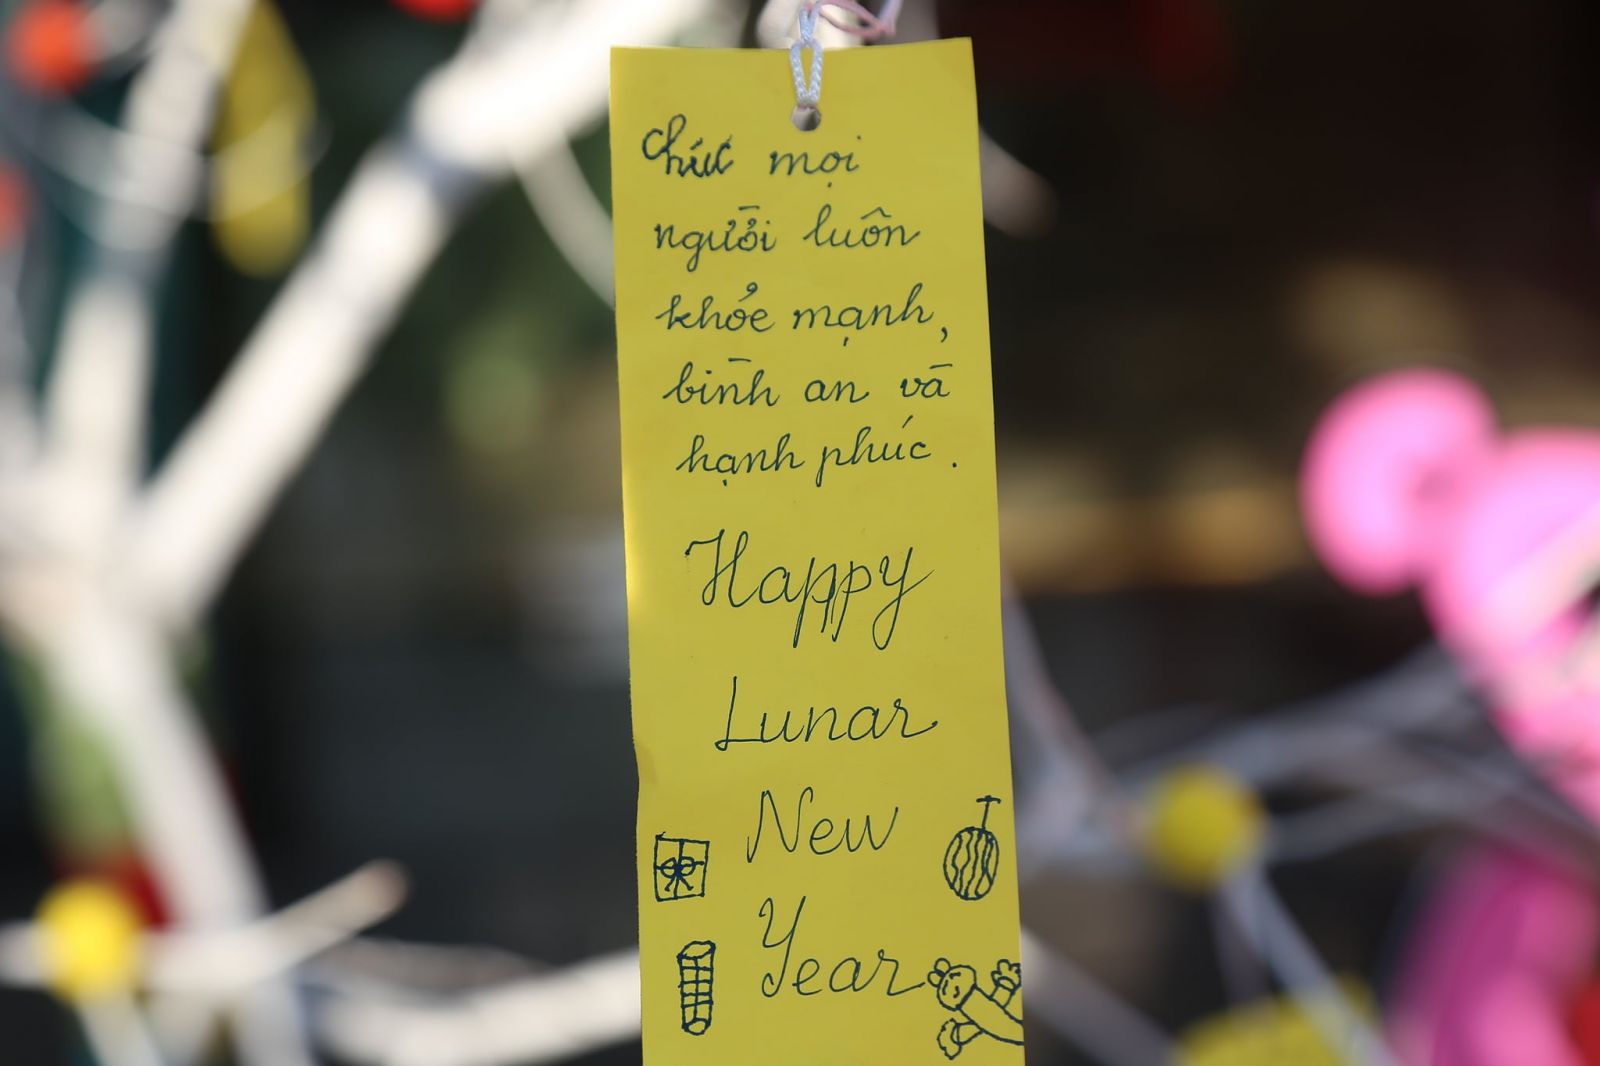 Chúc mọi
người luôn
khỏe mạnh,
bình an và
hạnh phúc.
Happy
Lunar
New
Year